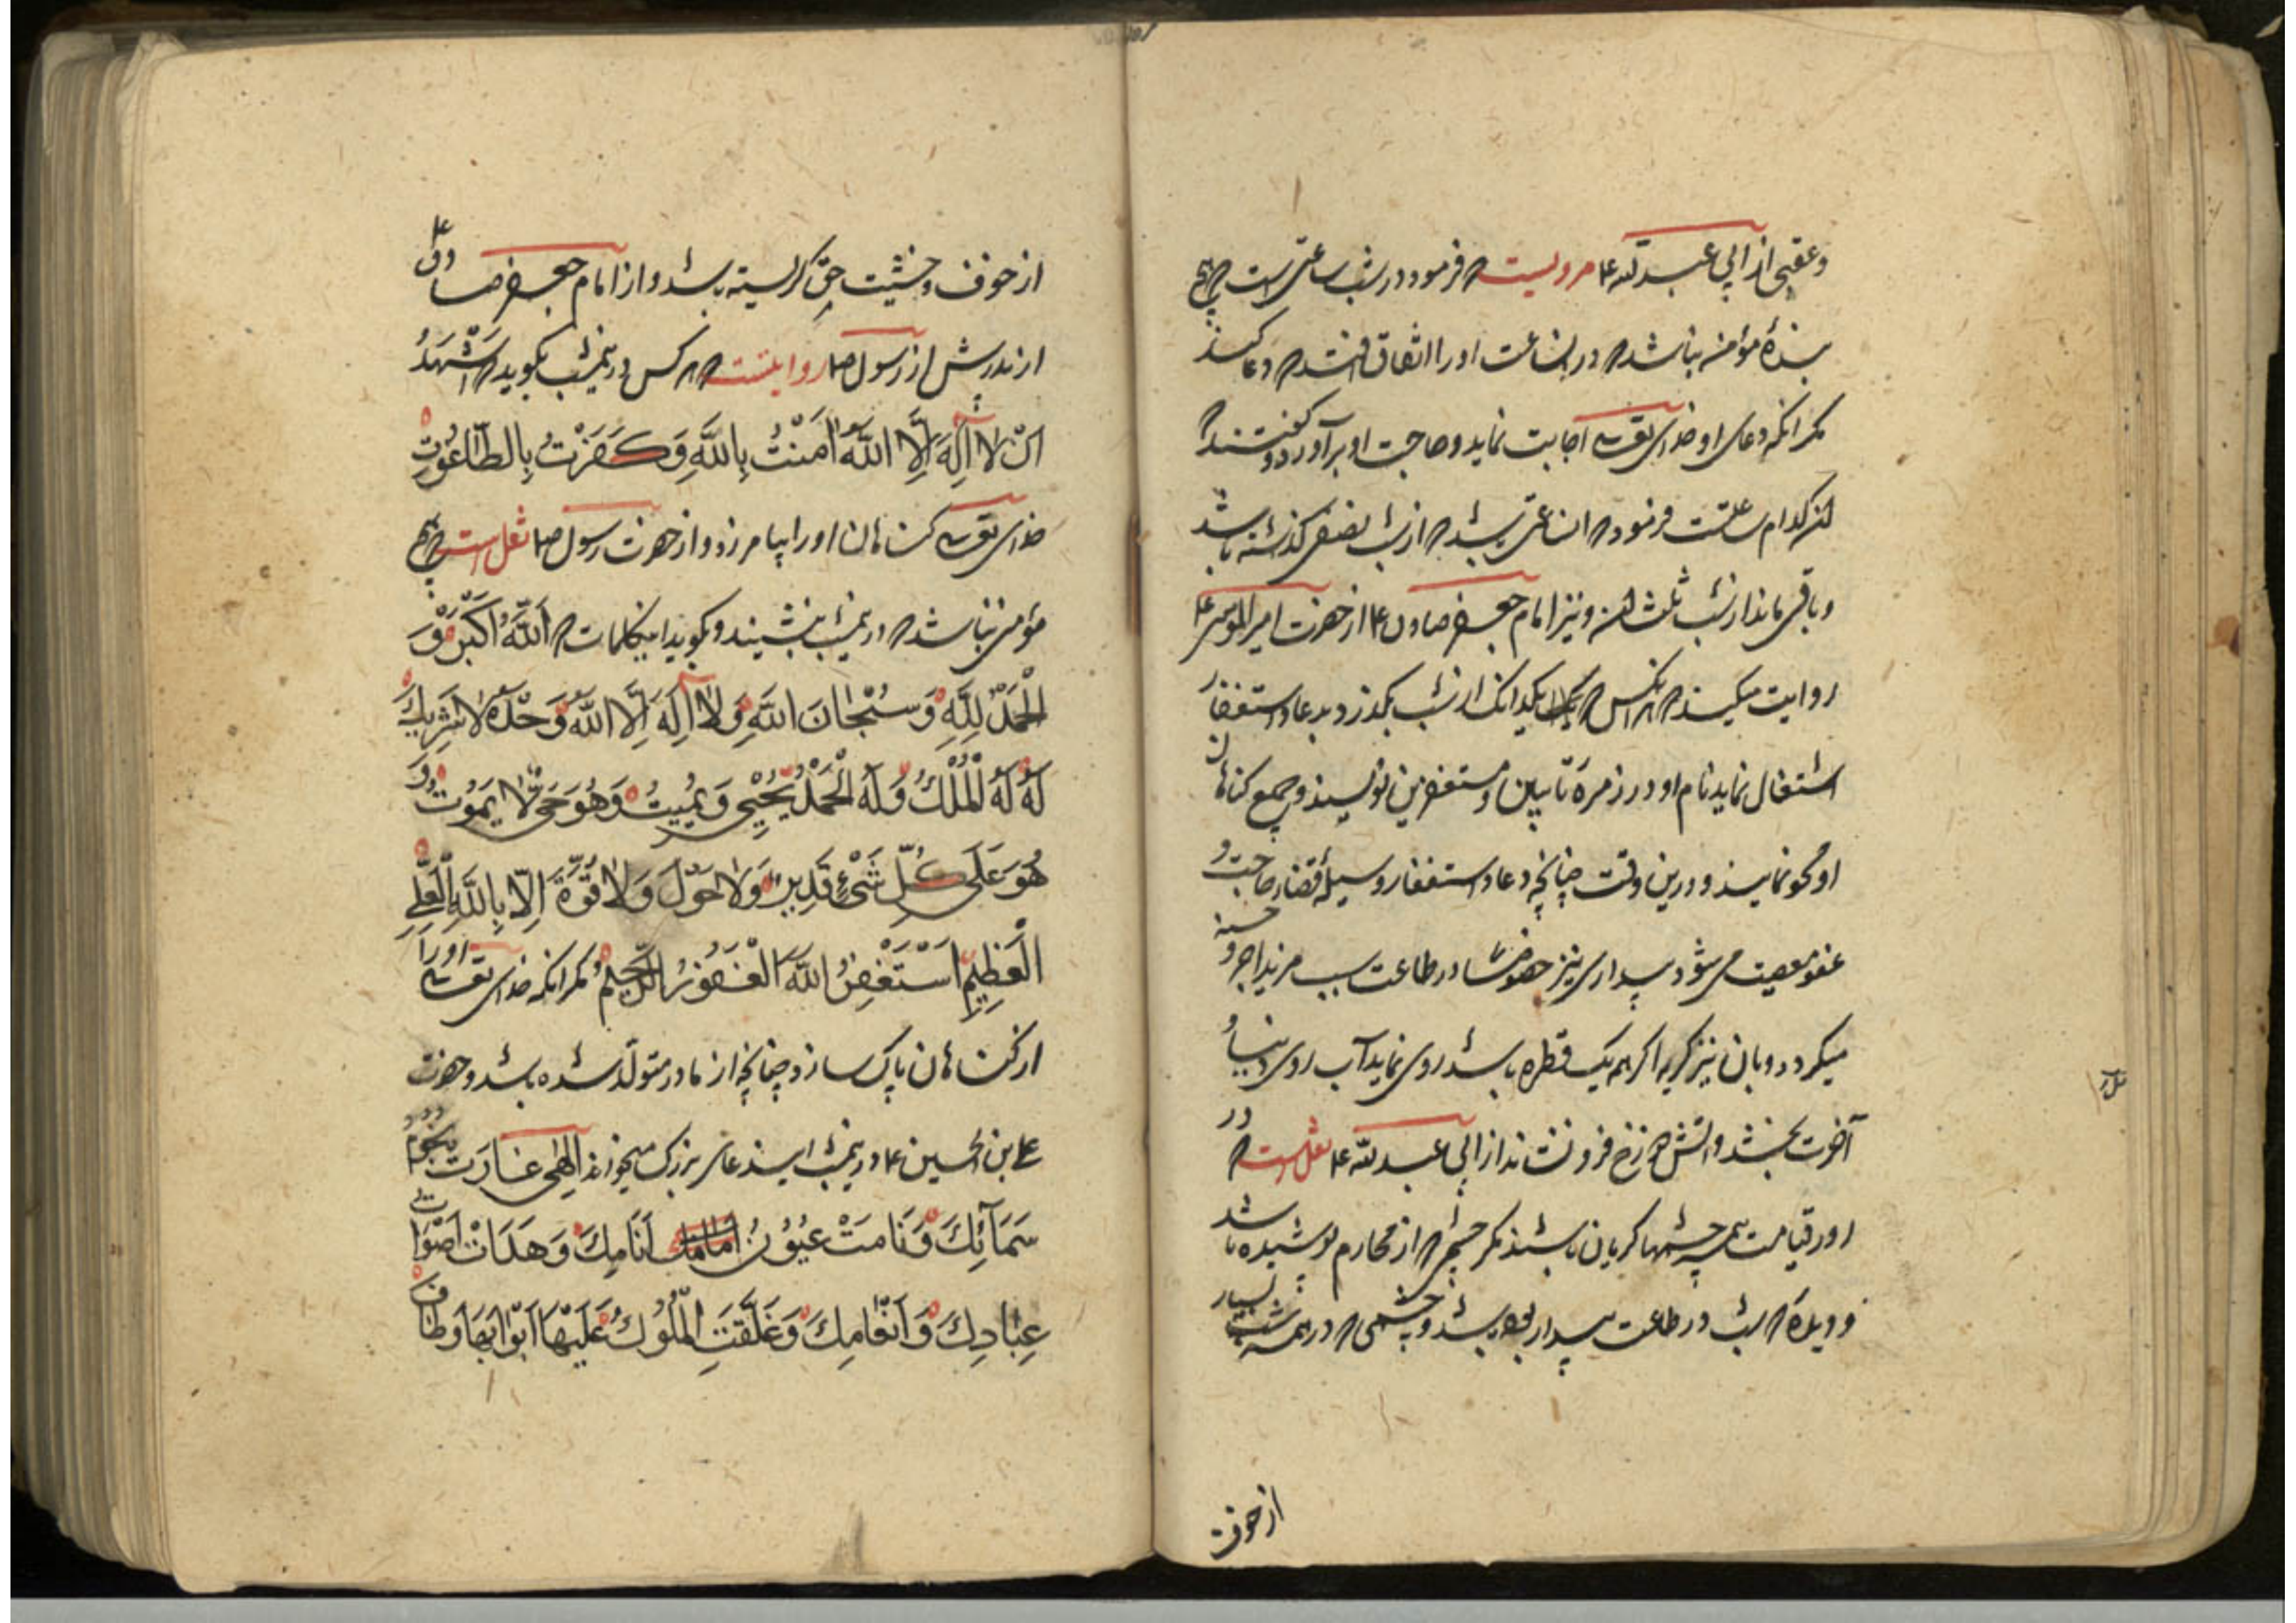 وعقبی از ابی عبدالله ع مرویست که فرمود در شب ساعتی است که هیچ
بندهٔ مؤمنه نباشد که در انساعت او را اتفاق افتد که دعا کند
مکر انکه دعای او خدای تعالی اجابت نماید و حاجت او برآورد گفتند که
ان کدام ساعتست فرمود که ان ساعتی باشد که از شب نصفی کذشته باشد
و باقی ماند از شب ثلث ان و نیز امام جعفر صادق ع از حضرت امیرالمؤمنین ع
روایت میکند که هر انکس که یکدانک از شب بکذرد بدعا و استغفار
اشتغال نماید نام او در زمرهٔ تایبین و مستغفرین نویسند و جمیع کناهان
او محو نمایند و درین وقت چنانچه دعا و استغفار وسیلهٔ قضاء حاجت و
عفو معصیت می شود بیداری نیز خصوصا در طاعت سبب مزید اجر و حسنه
میکردد و بان نیز کریه اکر همه یک قطره باشد روی نماید آب روی دنیا و
آخرت بخشد و اتش دوزخ فرو نشاند از ابی عبدالله ع نقل است که در
روز قیامت همه چشمها کریان باشند مکر چشمی که از محارم پوشیده باشد
و دیدهٔ که شب در طاعت بیدار بوده باشد و چشمی که در نیمه شب بسیار
از خوف
از خوف و خشیت حق کریسته باشد و از امام جعفر صادق ع
از پدرش از رسول ص روایتست که هر کس در نیمشب بکوید که اَشْهَدُ
اَنْ لا اِلَهَ اِلَّا اللّٰهُ اٰمَنْتُ بِاللّٰهِ وَكَفَرْتُ بِالطّٰاغُوتِ
خدای تعالی کناهان او را بیامرزد و از حضرت رسول ص نقل است که هیچ
مؤمنی نباشد که در نیمشب بنشیند و بکوید اینکلمات که اَللّٰهُ اَكْبَرُ وَ
الْحَمْدُ لِلّٰهِ وَ سُبْحٰانَ اللّٰهِ وَ لٰا اِلَهَ اِلَّا اللّٰهُ وَحْدَهُ لٰا شَرِيكَ
لَهُ لَهُ الْمُلْكُ وَ لَهُ الْحَمْدُ يُحْيِي وَ يُمِيتُ وَ هُوَ حَيٌّ لٰا يَمُوتُ وَ
هُوَ عَلَى كُلِّ شَيْءٍ قَدِيرٌ وَ لٰا حَوْلَ وَ لٰا قُوَّةَ اِلّٰا بِاللّٰهِ الْعَلِيِّ
الْعَظِيمِ اَسْتَغْفِرُ اللّٰهَ الْغَفُورُ الرَّحِيمُ مکر انکه خدای تعالی او را
از کناهان پاک سازد چنانچه از مادر متولد شده باشد و حضرت
علی بن الحسین ع در نیمشب ایندعای بزرک میخوانند اِلٰهِي غَارَتْ نُجُومُ
سَمٰآئِكَ وَ نَامَتْ عُيُونُ اَنَامِكَ وَ هَدَاَتْ اَصْوٰاتُ
عِبٰادِكَ وَ اَنْعٰامِكَ وَ غَلَّقَتِ الْمُلُوكُ عَلَيْهٰا اَبْوٰابَهَا وَ طٰافَ